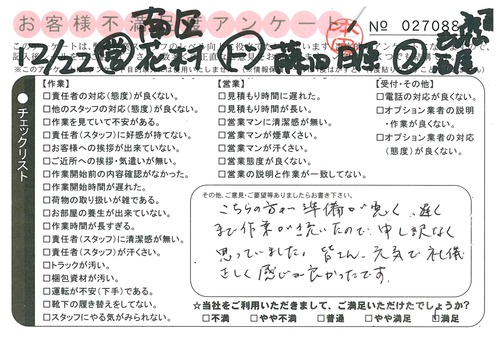 お客様不満足度アンケート
No 027088
南区
7/22 営 花村
チェックリスト
【作業】
□責任者の対応(態度)が良くない。
□他のスタッフの対応(態度)が良くない。
□作業を見ていて不安がある。
□責任者(スタッフ)に好感が持てない。
□お客様への挨拶が出来ていない。
□ご近所への挨拶・気遣いが無い。
□作業開始前の内容確認がなかった。
□作業開始時間が遅れた。
□荷物の取り扱いが雑である。
□お部屋の養生が出来ていない。
□作業時間が長すぎる。
□責任者(スタッフ)に清潔感が無い。
□責任者(スタッフ)が汗くさい。
□トラックが汚い。
□梱包資材が汚い。
□運転が不安(下手)である。
□靴下の履き替えをしてない。
□スタッフにやる気がみられない。
【営業】
□見積もり時間に遅れた。
□見積もり時間が長い。
□営業マンに清潔感が無い。
□営業マンが煙草くさい。
□営業マンが汗くさい。
□営業態度が良くない。
□営業の説明と作業が一致してない。
【受付・その他】
□電話の対応が良くない。
□オプション業者の説明・作業が良くない。
□オプション業者の対応(態度)が良くない。
その他、ご意見・ご要望等ありましたらお書き下さい。
こちらの方が準備が悪く、遅く
まで作業が続いたので、申し訳なく
思っていました。皆さん、元気で礼儀
正しく感じが良かったです。
☆当社をご利用いただきまして、ご満足いただけたでしょうか?
□不満 □やや不満 □普通 □やや満足 □満足